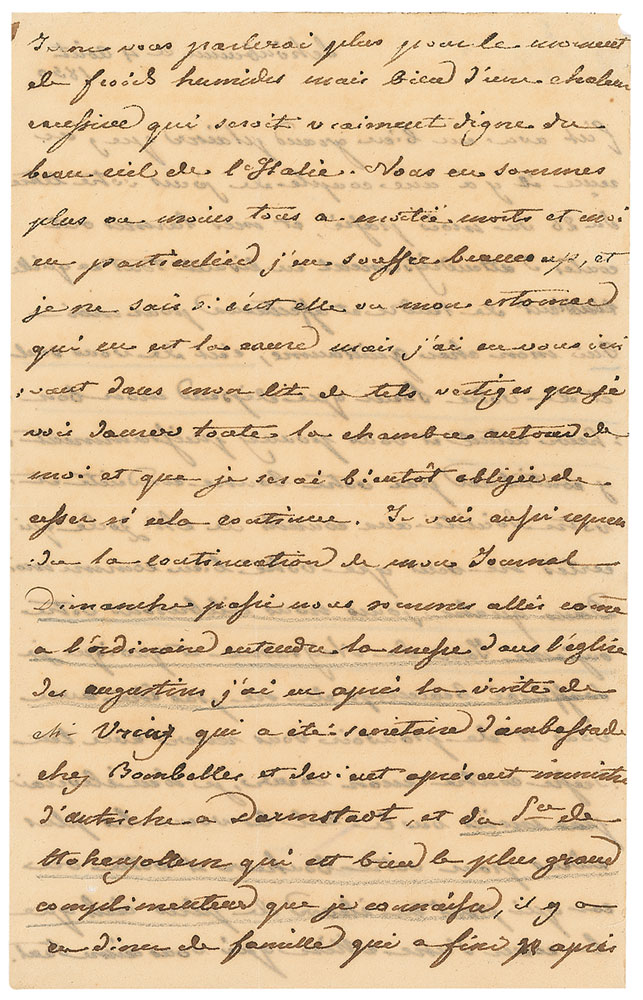 Je ne vous parlerai plus pour le moment
de froids humides mais bien d'une chaleur
excessive qui seroit vraiment digne du
beau ciel de l'Italie. Nous en sommes
plus ou moins tous a moitié morts et moi
en particulier j'en souffre beaucoup, et
je ne sais si c'est elle ou mon estomac
qui en est la cause mais j'ai en vous ecri
vant dans mon lit de tels vertiges que je
vois danser toute la chambre autour de
moi et que je serai bientôt obligée de
cesser si cela continue. Je vais aussi repren
dre la continuation de mon Journal
Dimanche passé nous sommes allés come
a l'ordinaire entendre la messe dans l'église
des augustins j'ai eu après la visite de
qui a été secretaire d'ambassade
chez Bombelles et devient aprésent ministre
d'autriche a Darmstadt, et du Pce de
Hohenzollern qui est bien le plus grand
complimenteur que je connaisse, il y a
eu diner de famille qui a fini après